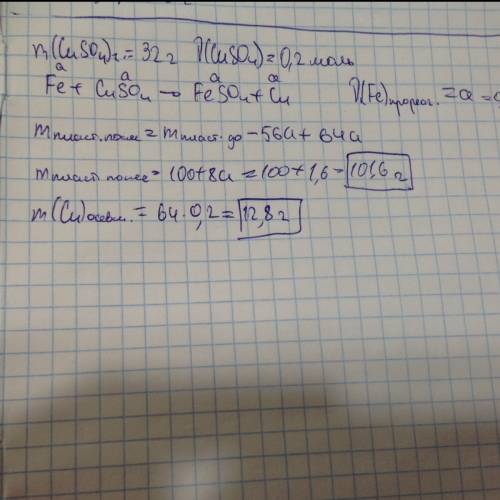 m(CuSO₄)₁ = 32 г ν(CuSO₄) = 0,2 моль
a a a a
Fe + CuSO₄ → FeSO₄ + Cu ν(Fe)прореаг. = a =
mпласт. после = mпласт. до − 56a + 64a
mпласт. после = 100 + 8a = 100 + 1,6 = 101,6 г
m(Cu) = 64 · 0,2 = 12,8 г